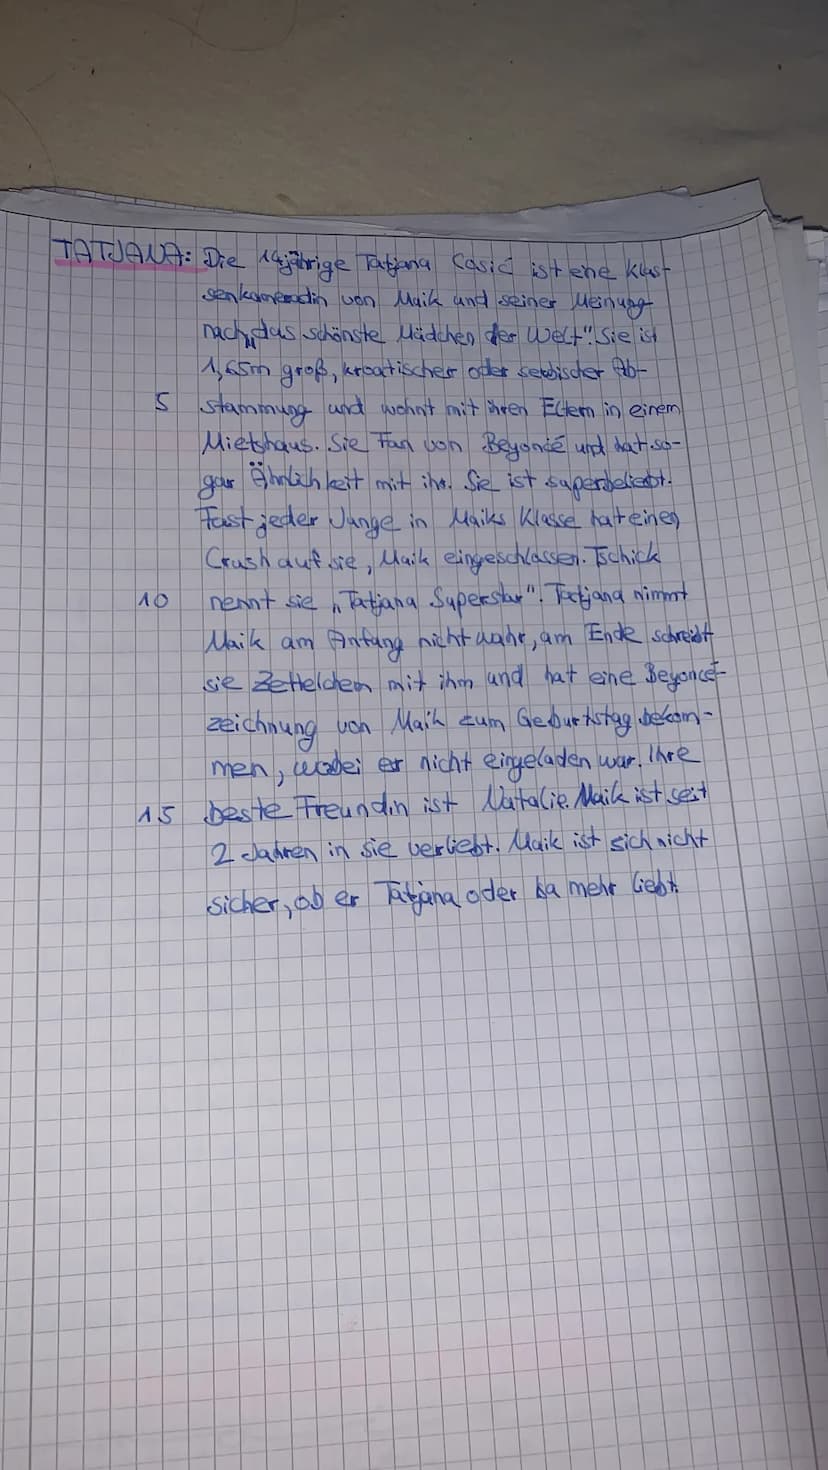 TATJANA: Die 14jährige Tatjana Cosic ist ene Klas-
senkameradin von Maik und seiner Meinung
nach „das schönste Mädchen der Welt". Sie ist
1,65m groß, kroatischer oder serbischer Ab-
5 stammung und wohnt mit ihren Eltern in einem
Mietshaus. Sie Fan von Beyoncé und hat so-
gar Ähnlichkeit mit ihr. Sie ist superbeliebt.
Fast jeder Junge in Maiks Klasse hat einen
Crush auf sie, Maik eingeschlossen. Tschick
10 nennt sie „Tatjana Superstar". Tatjana nimmt
Maik am Anfang nicht wahr, am Ende schreibt
sie Zettelchen mit ihm und hat eine Beyoncé-
zeichnung von Maik zum Geburtstag bekom-
men, wobei er nicht eingeladen war. Ihre
15 beste Freundin ist Natalie. Maik ist seit
2 Jahren in sie verliebt. Maik ist sich nicht
sicher, ob er Tatjana oder Isa mehr liebt.